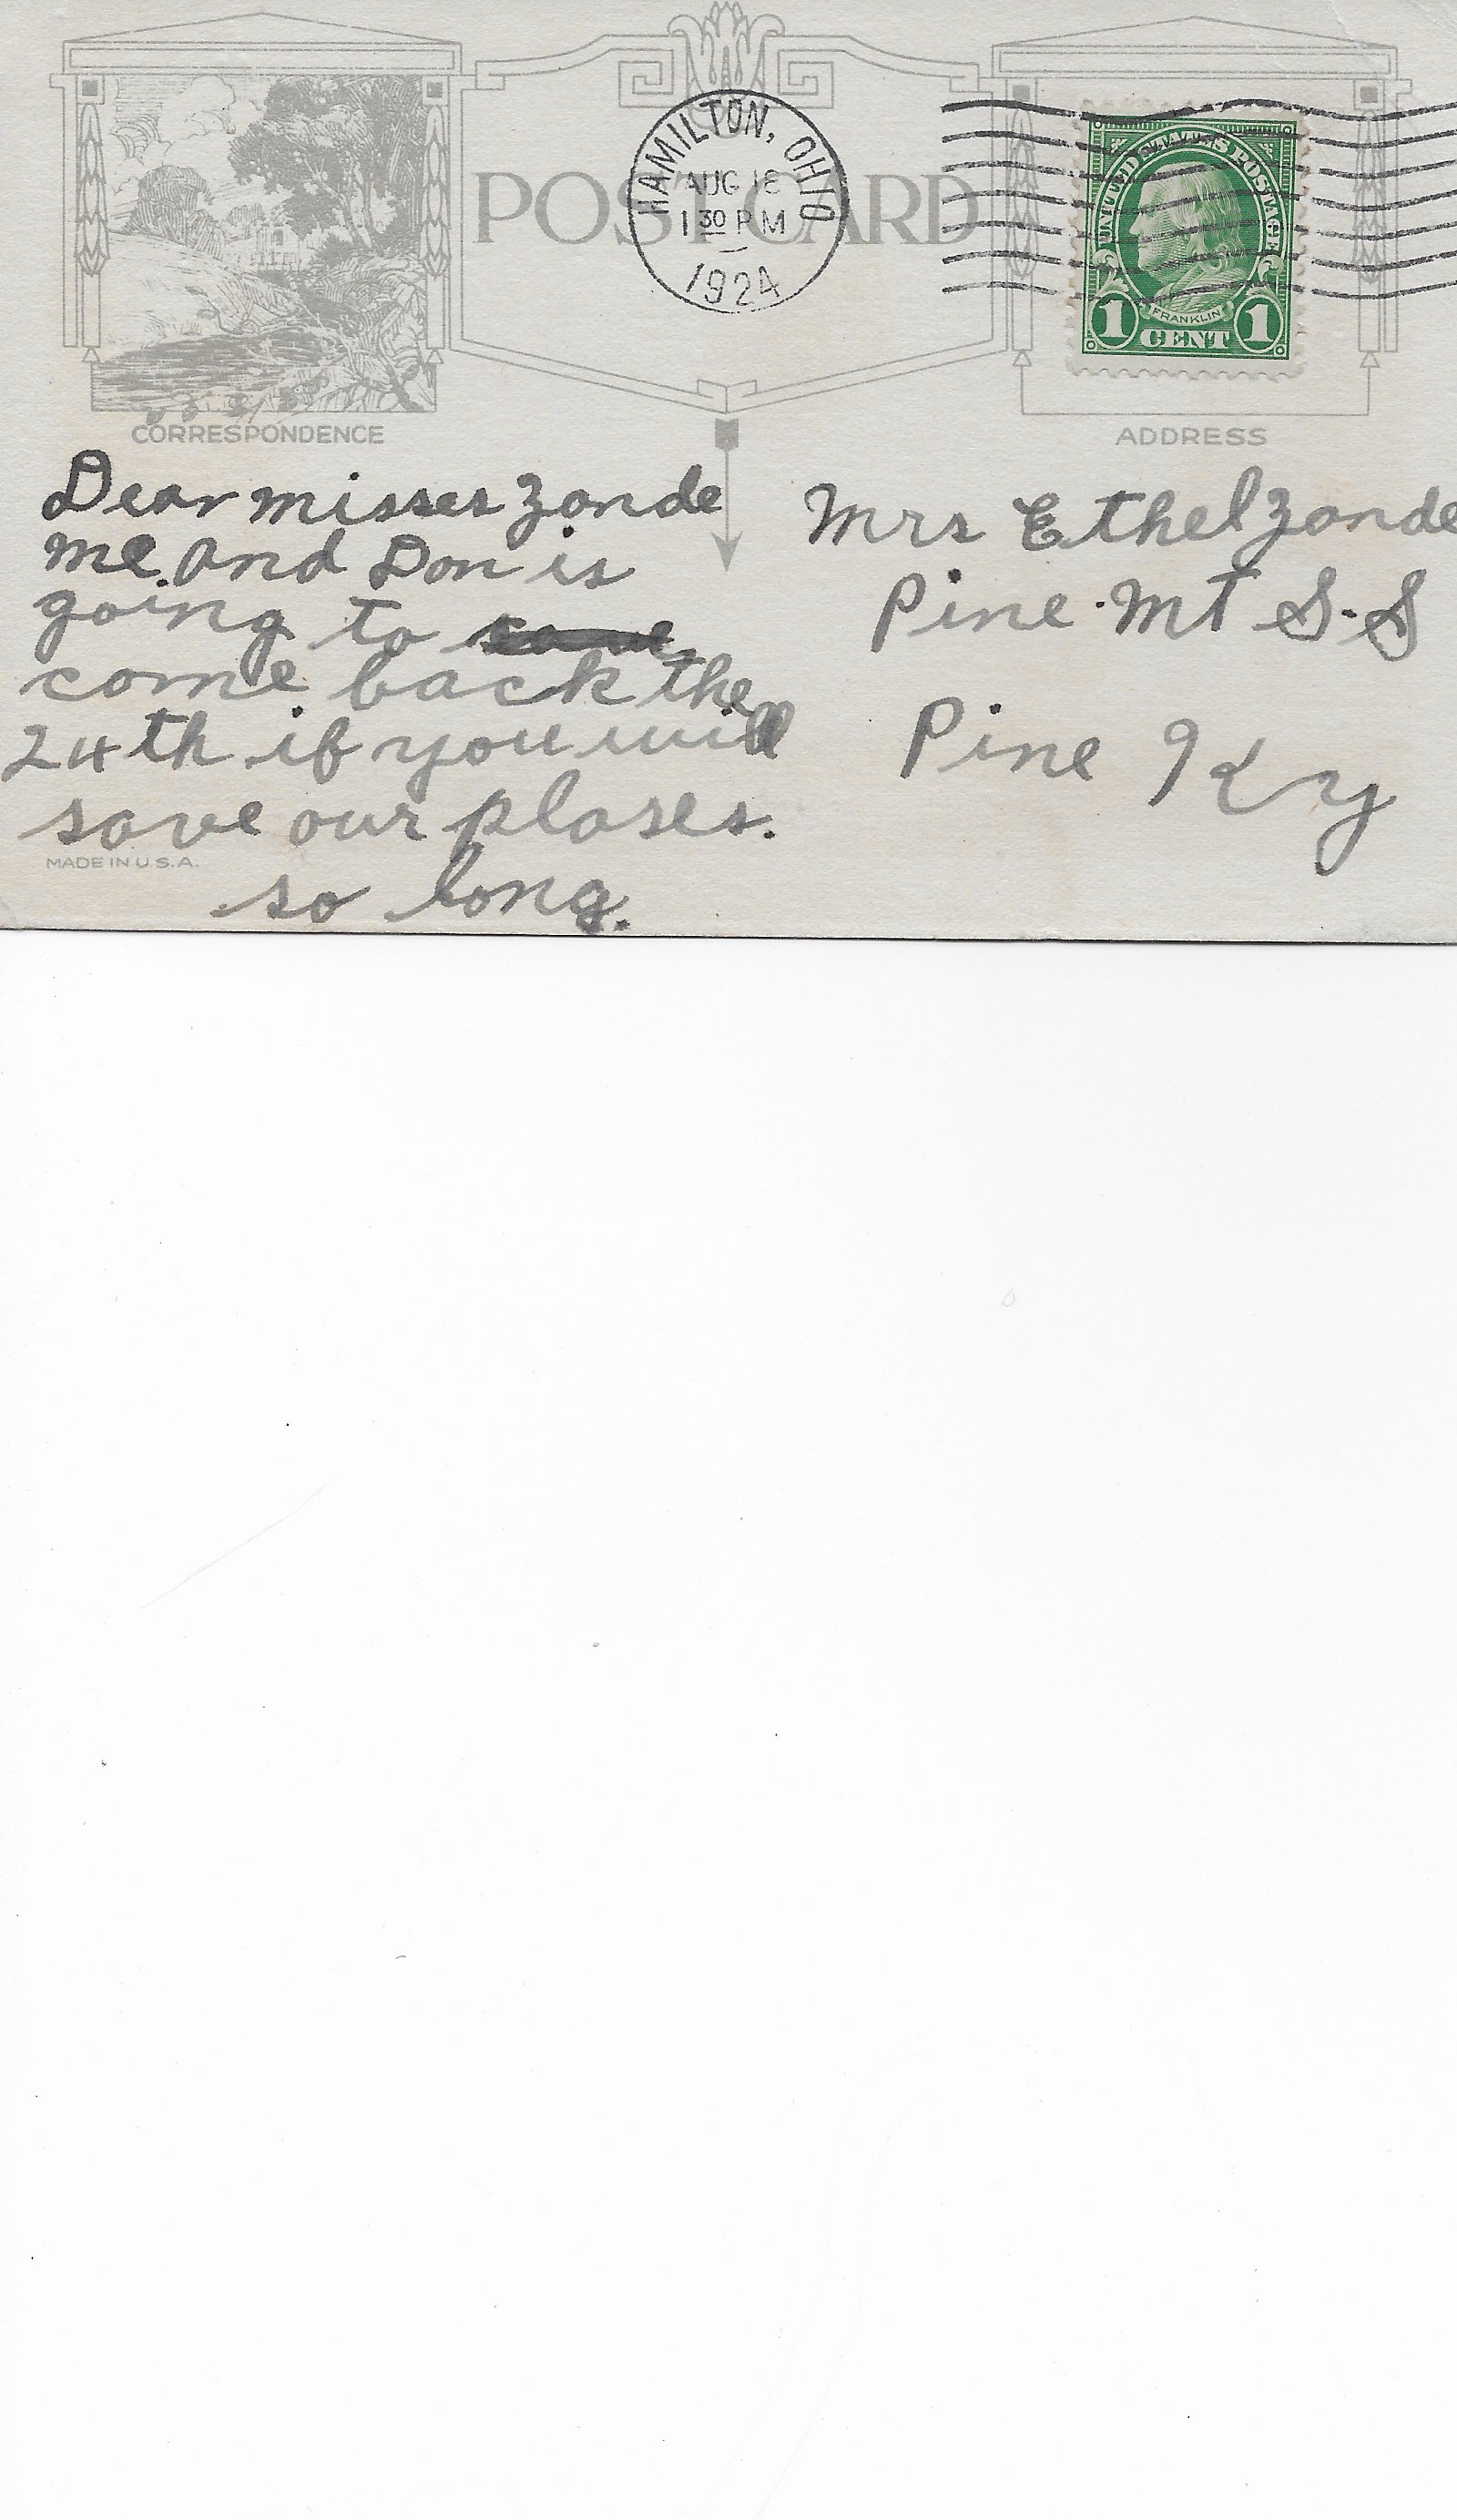 POST CARD
HAMILTON, OHIO
AUG 18
1 30 PM
1924
UNITED STATES POSTAGE
FRANKLIN
1 CENT 1
CORRESPONDENCE
ADDRESS
Dear misses Zande
me and Don is
going to
come back the
24th if you will
save our plases.
so long.
MADE IN U.S.A.
Mrs Ethel Zande
Pine Mt S.S
Pine Ky